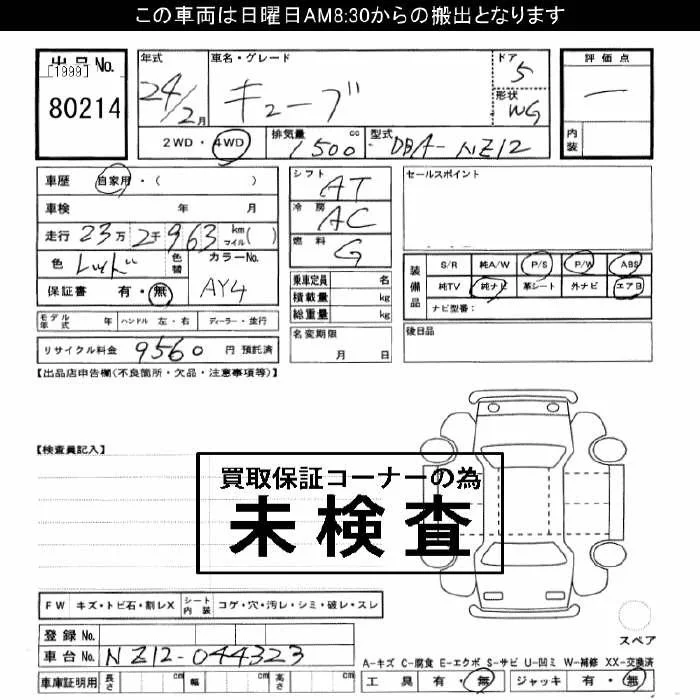 この車両は日曜日AM8:30からの搬出となります
出品No.
[1999]
80214
年式
24/2月
車名・グレード
キューブ
ドア
5
形状
WG
評価点
一
内装
2WD・4WD
排気量
1500 cc
型式
DBA-NZ12
車歴 自家用・( )
車検 年 月
走行 23万2千963 km マイル( )
色 レッド 色替 カラーNo. AY4
保証書 有・無
モデル年式 年 ハンドル 左・右 ディーラー・並行
リサイクル料金 9560 円 預託済
シフト AT
冷房 AC
燃料 G
乗車定員 名
積載量 kg
総重量 kg
名変期限
月 日
セールスポイント
装備品
S/R 純A/W P/S P/W ABS
純TV 純ナビ 革シート 外ナビ エアB
ナビ型番:
後日品
【出品店申告欄(不良箇所・欠品・注意事項等)】
【検査員記入】
買取保証コーナーの為
未検査
FW キズ・トビ石・割レX シート内装 コゲ・穴・汚レ・シミ・破レ・スレ
登録No.
車台No. NZ12-044323
車庫証明用 長さ cm 幅 cm 高さ cm
スペア
A-キズ C-腐食 E-エクボ S-サビ U-凹ミ W-補修 XX-交換済
工具 有・無 ジャッキ 有・無